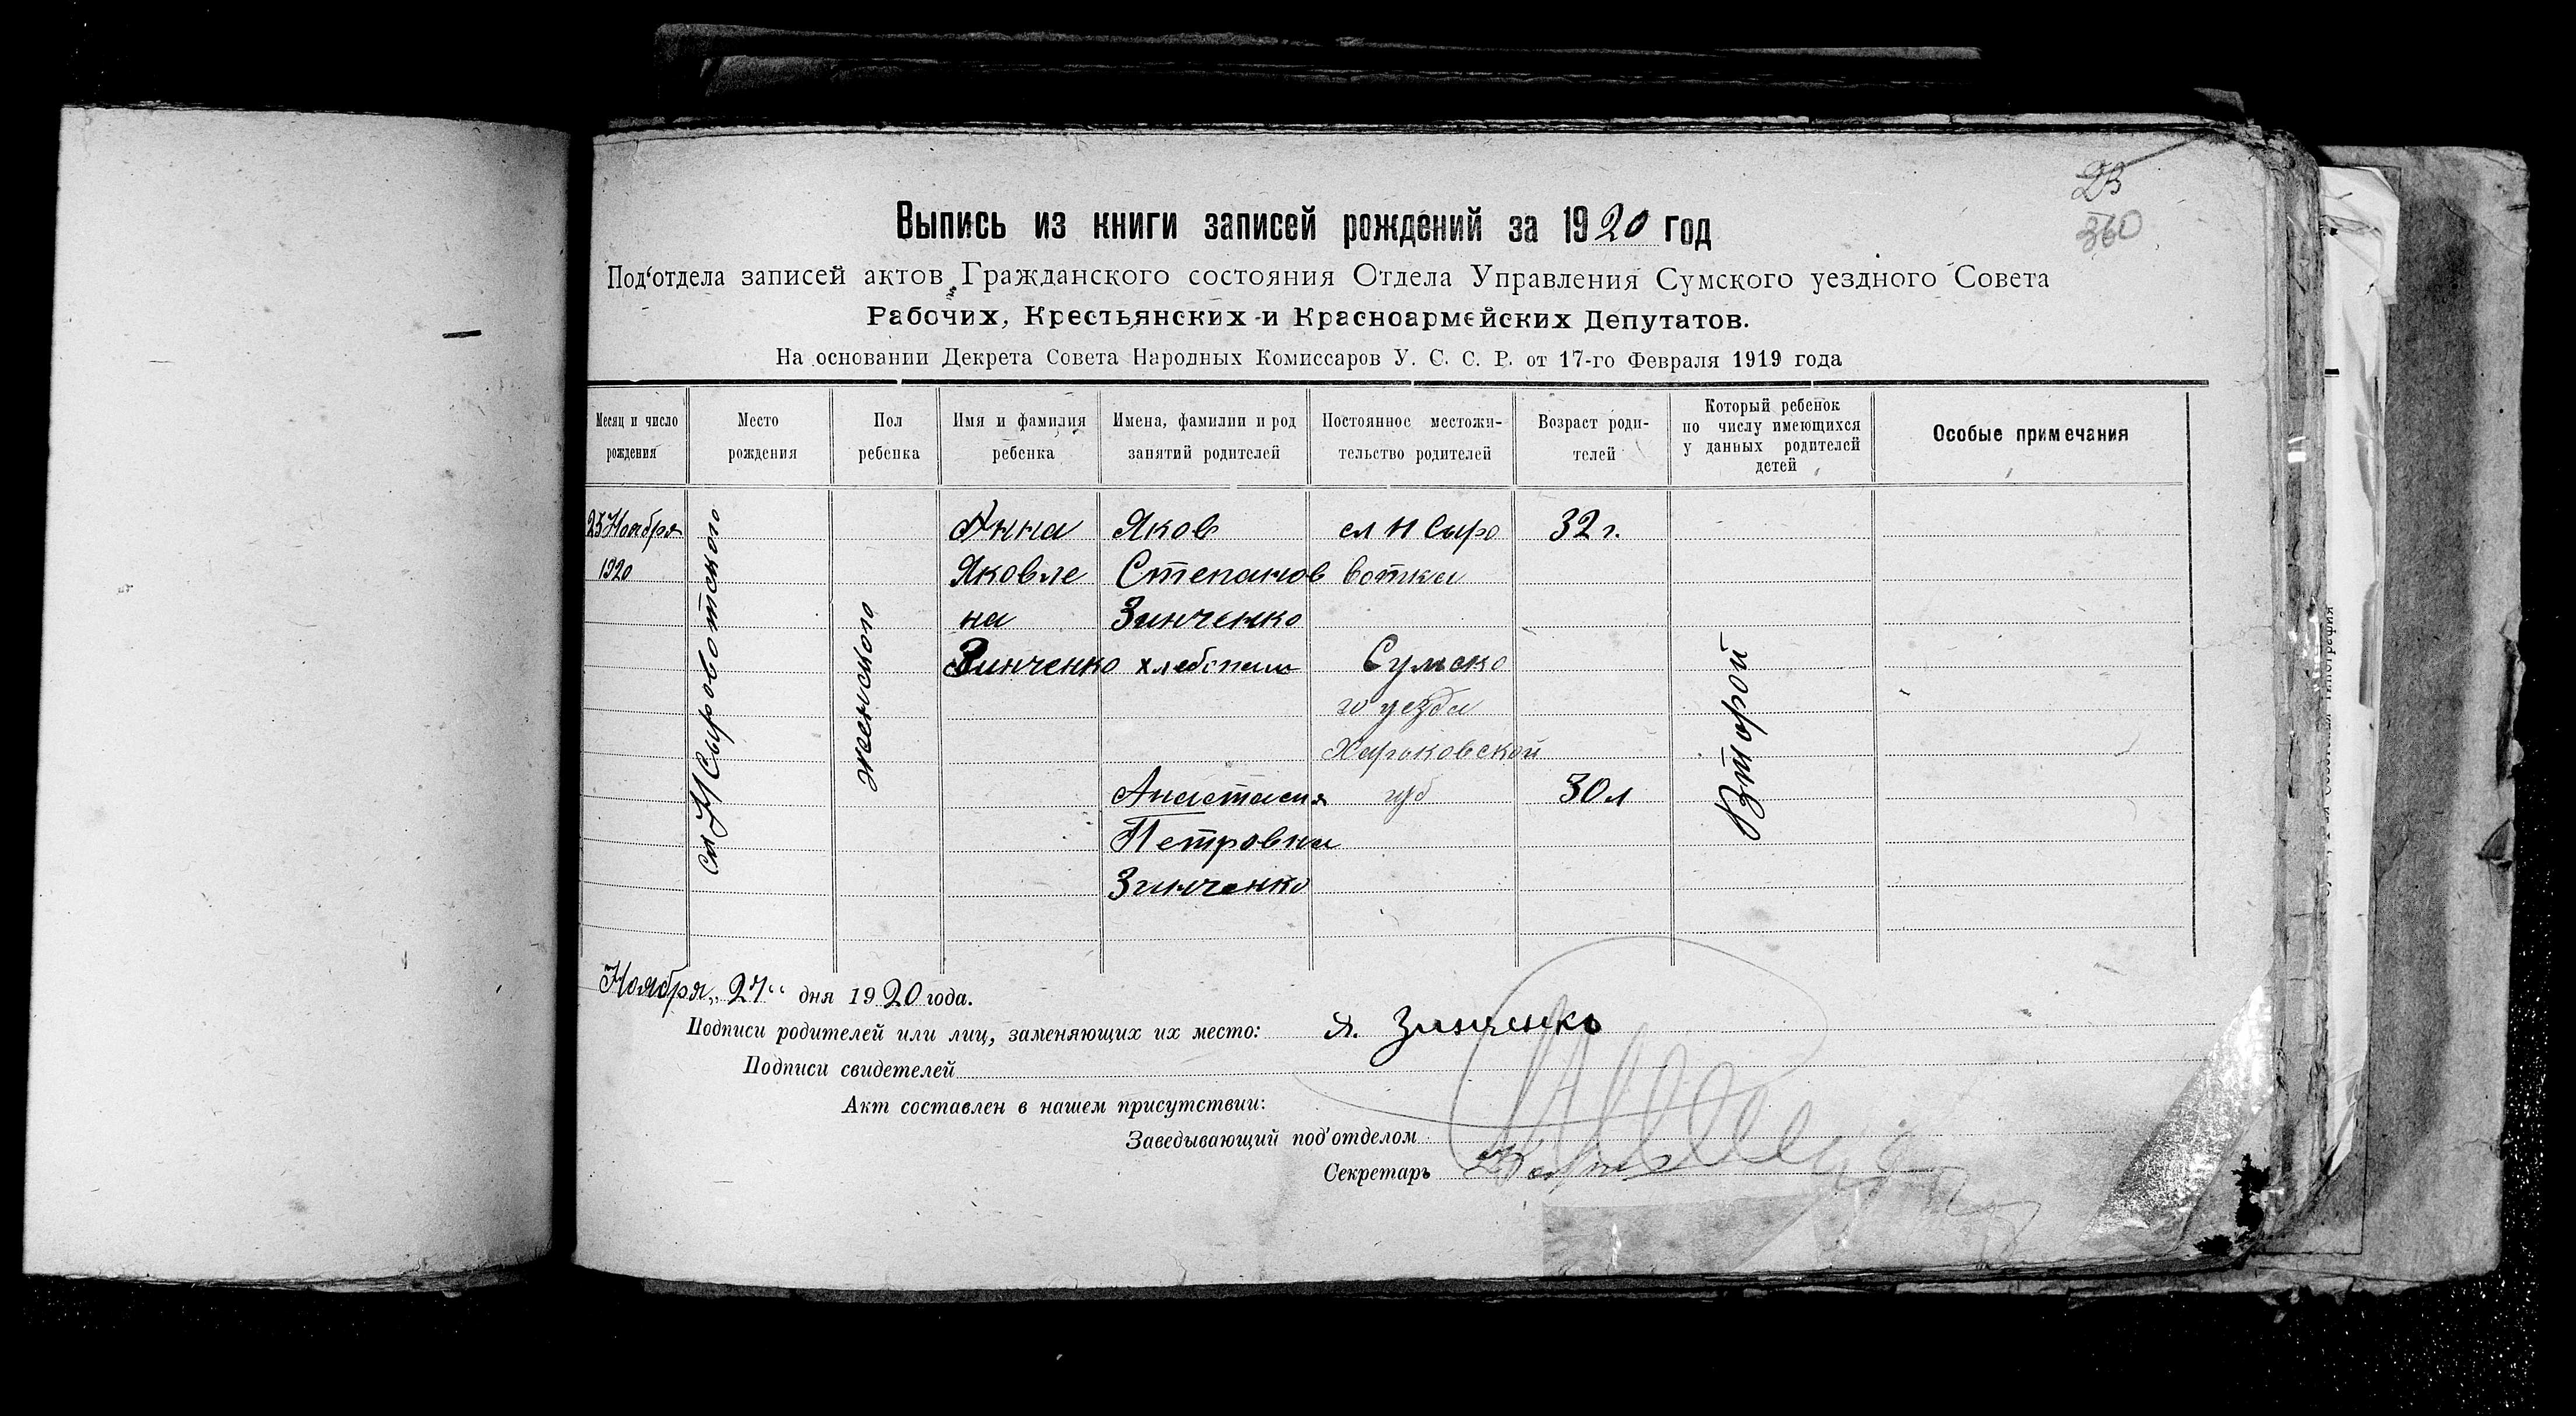 360
Выпись из книги записей рождений за 1920 год
Под'отдела записей актов Гражданского состояния Отдела Управления Сумского уездного Совета
Рабочих, Крестьянских и Красноармейских Депутатов.
На основании Декрета Совета Народных Комиссаров У. С. С. Р. от 17-го Февраля 1919 года
Месяц и число
рождения
Место
рождения
Пол
ребенка
Имя и фамилия
ребенка
Имена, фамилии и род
занятий родителей
Постоянное местожи-
тельство родителей
Возраст роди-
телей
Который ребенок
по числу имеющихся
у данных родителей
детей
Особые примечания
25 Ноября
1920
сл Н Сыровотского
женского
Анна
Яковле
на
Зинченко
Яков
Степанов
Зинченко
хлебопаш
Анастасия
Петровна
Зинченко
сл Н Сыро
вотка
Сумско
го уезда
Харьковской
губ
32 г.
30 л
Второй
Ноября „27“ дня 1920 года.
Подписи родителей или лиц, заменяющих их место: Я. Зинченко
Подписи свидетелей
Акт составлен в нашем присутствии:
Заведывающий под'отделом
Секретарь